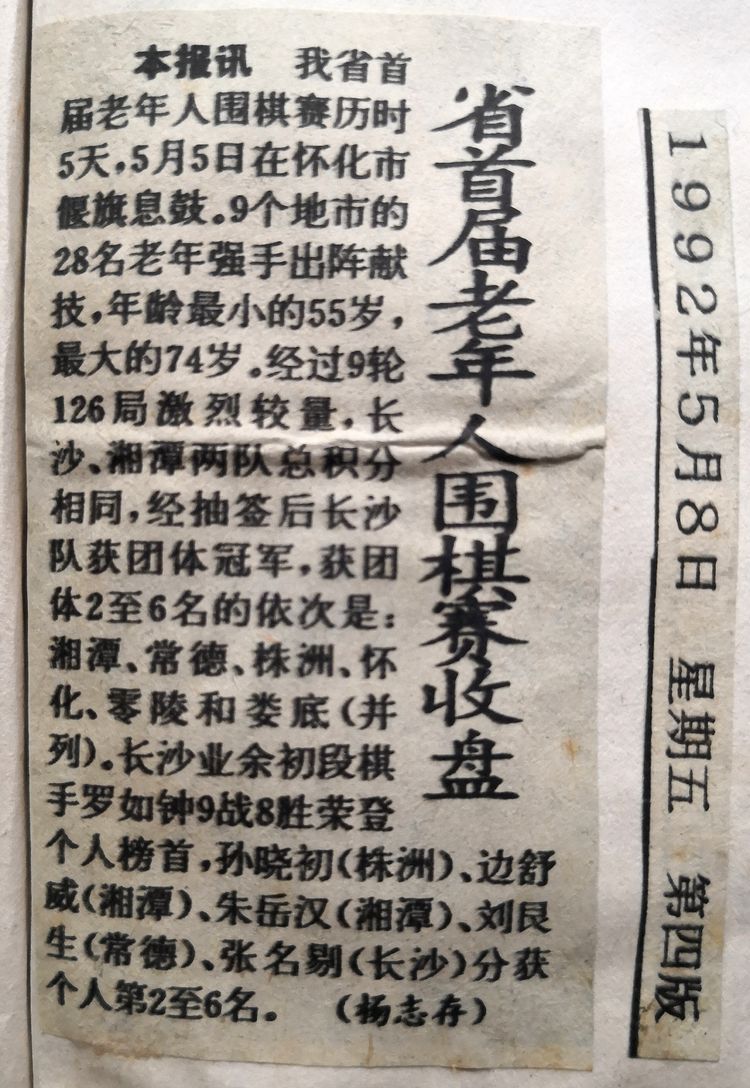 省首届老年人围棋赛收盘
本报讯 我省首
届老年人围棋赛历时
5天,5月5日在怀化市
偃旗息鼓。9个地市的
28名老年强手出阵献
技,年龄最小的55岁,
最大的74岁。经过9轮
126局激烈较量,长
沙、湘潭两队总积分
相同,经抽签后长沙
队获团体冠军,获团
体2至6名的依次是:
湘潭、常德、株洲、怀
化、零陵和娄底(并
列)。长沙业余初段棋
手罗如钟9战8胜荣登
个人榜首,孙晓初(株洲)、边舒
威(湘潭)、朱岳汉(湘潭)、刘艮
生(常德)、张名剔(长沙)分获
个人第2至6名。 (杨志存)
1992年5月8日 星期五 第四版